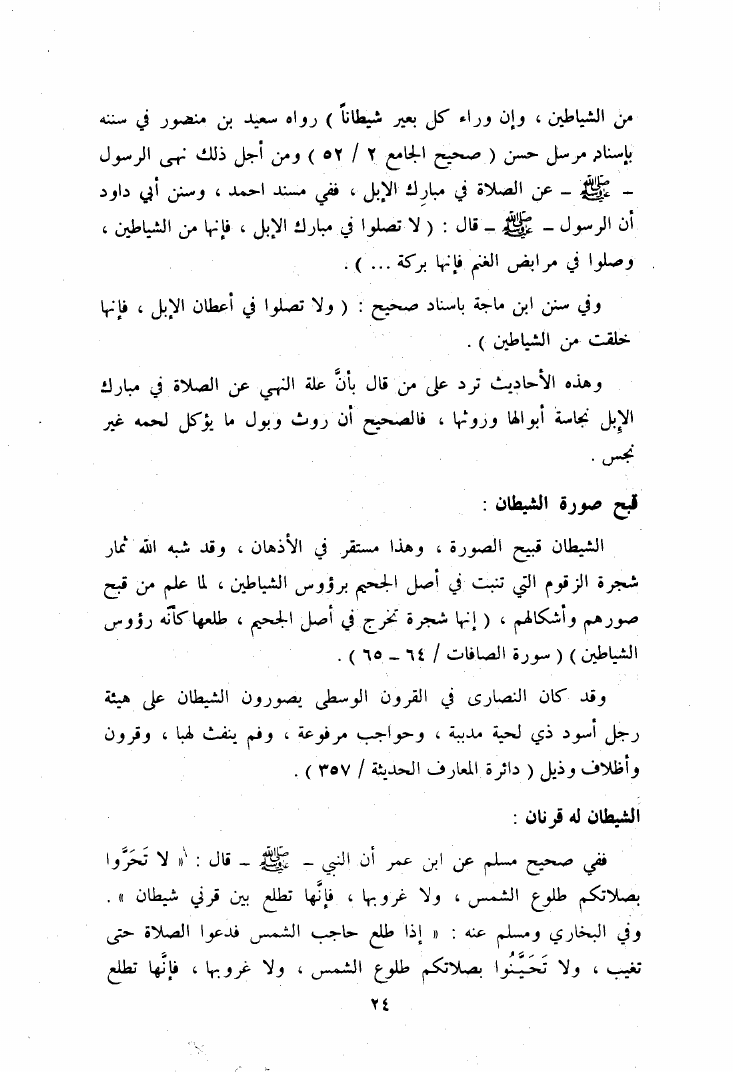 من الشياطين ، وإن وراء كل بعير شيطاناً ) رواه سعيد بن منصور في سننه
بإسناد مرسل حسن ( صحيح الجامع ٢ / ٥٢ ) ومن أجل ذلك نهى الرسول
ـ ﷺ ـ عن الصلاة في مبارك الإبل ، ففي مسند احمد ، وسنن أبي داود
أن الرسول ـ ﷺ ـ قال : ( لا تصلوا في مبارك الإبل ، فإنها من الشياطين ،
وصلوا في مرابض الغنم فإنها بركة ... ) .
وفي سنن ابن ماجة باسناد صحيح : ( ولا تصلوا في أعطان الإبل ، فإنها
خلقت من الشياطين ) .
وهذه الأحاديث ترد على من قال بأنَّ علة النهي عن الصلاة في مبارك
الإبل نجاسة أبوالها وروثها ، فالصحيح أن روث وبول ما يؤكل لحمه غير
نجس .
قبح صورة الشيطان :
الشيطان قبيح الصورة ، وهذا مستقر في الأذهان ، وقد شبه الله ثمار
شجرة الزقوم التي تنبت في أصل الجحيم برؤوس الشياطين ، لما علم من قبح
صورهم وأشكالهم ، ( إنها شجرة تخرج في أصل الجحيم ، طلعها كأنه رؤوس
الشياطين ) ( سورة الصافات / ٦٤ ـ ٦٥ ) .
وقد كان النصارى في القرون الوسطى يصورون الشيطان على هيئة
رجل أسود ذي لحية مدببة ، وحواجب مرفوعة ، وفم ينفث لهبا ، وقرون
وأظلاف وذيل ( دائرة المعارف الحديثة / ٣٥٧ ) .
الشيطان له قرنان :
ففي صحيح مسلم عن ابن عمر أن النبي ـ ﷺ ـ قال : « لا تَحَرَّوا
بصلاتكم طلوع الشمس ، ولا غروبها ، فإنَّها تطلع بين قرني شيطان » .
وفي البخاري ومسلم عنه : « إذا طلع حاجب الشمس فدعوا الصلاة حتى
تغيب ، ولا تَحَيَّنُوا بصلاتكم طلوع الشمس ، ولا غروبها ، فإنَّها تطلع
٢٤